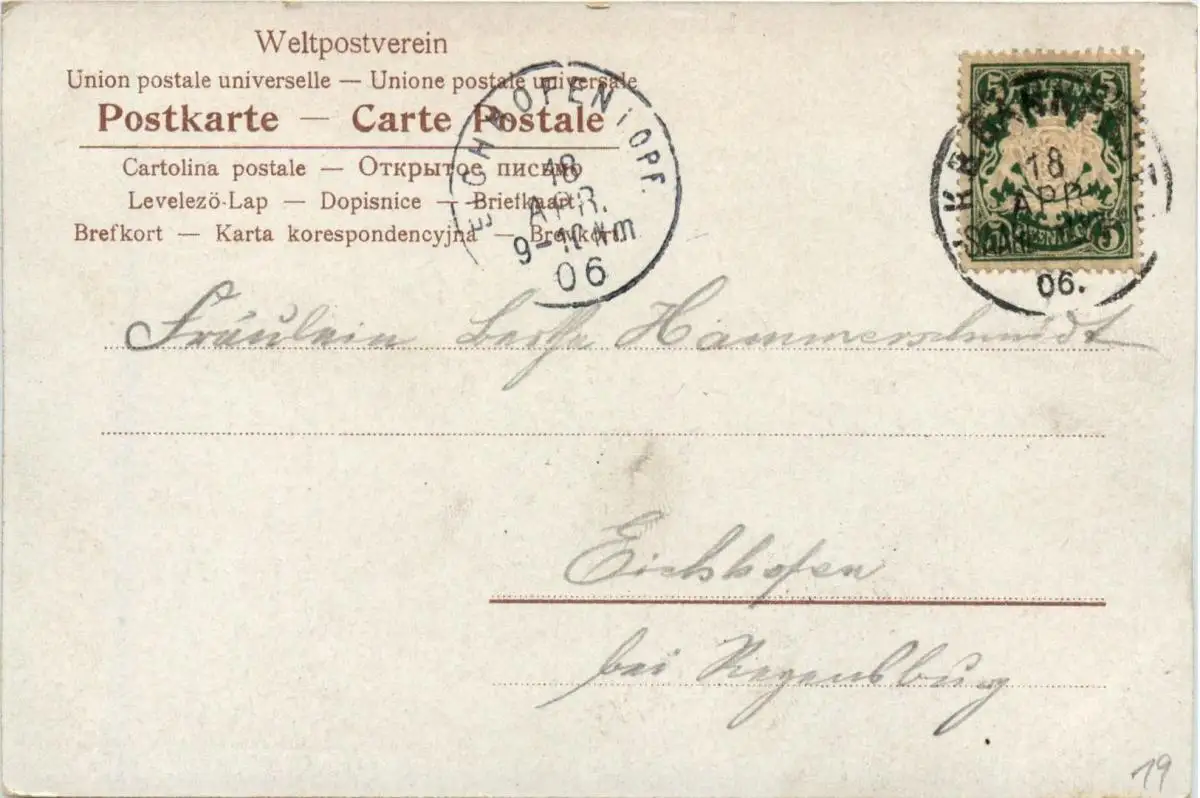 Weltpostverein
Union postale universelle — Unione postale universale
Postkarte — Carte Postale
Cartolina postale — Открытое письмо
Levelező-Lap — Dopisnice — Briefkaart
Brefkort — Karta korespondencyjna — Brevkort
EICHHOFEN i OPF.
18
APR.
9-10 Nm
06
5 5
18
APR
5 PFENNIG 5
06.
Fräulein Hammerschmidt
Eichhofen
bei Regensburg
19